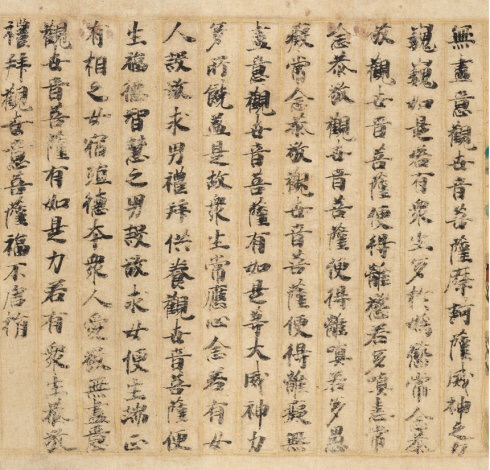 無盡意觀世音菩薩摩訶薩威神之力
巍巍如是若有衆生多於婬慾常念恭
敬觀世音菩薩便得離慾若多瞋恚常
念恭敬觀世音菩薩便得離瞋若多愚
癡常念恭敬觀世音菩薩便得離癡無
盡意觀世音菩薩有如是等大威神力
多所饒益是故衆生常應心念若有女
人設欲求男禮拜供養觀世音菩薩便
生福德智慧之男設欲求女便生端正
有相之女宿殖德本衆人愛敬無盡意
觀世音菩薩有如是力若有衆生恭敬
禮拜觀世意菩薩福不唐捐